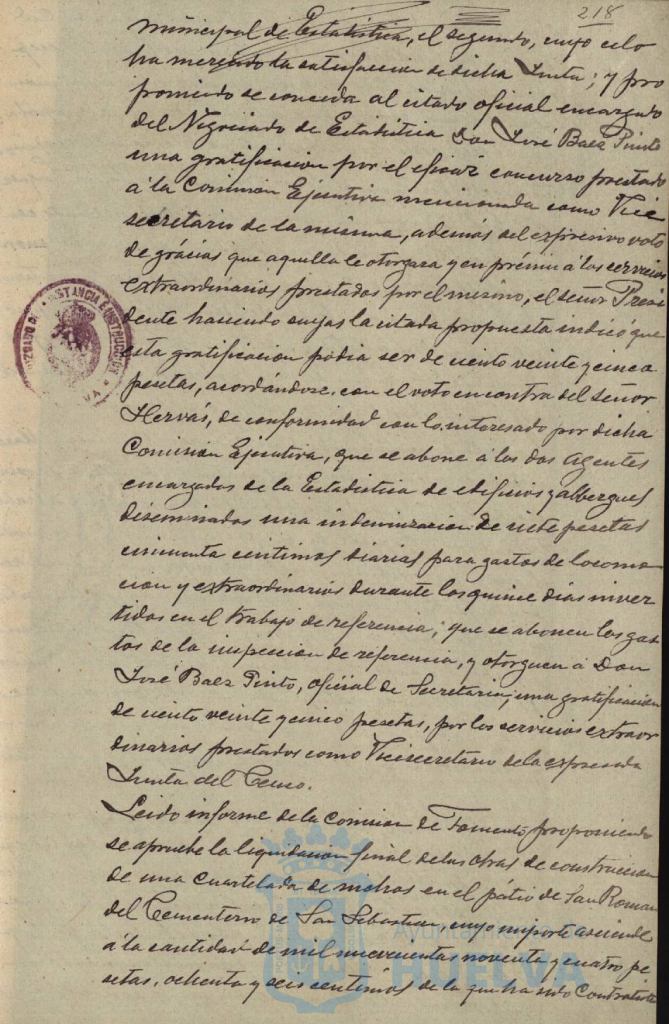 218
municipal de Estadística, el segundo, cuyo celo
ha merecido la satisfacción de dicha Junta; y pro
poniendo se conceda al citado oficial encargado
del Negociado de Estadística Don José Baez Pinto
una gratificacion por el eficaz concurso prestado
á la Comision Ejecutiva mencionada como Vice
secretario de la misma, además del expresivo voto
de grácias que aquella le otorgara y en prémio á los servicios
extraordinarios prestados por el mismo, el señor Presi
dente haciendo suyas la citada propuesta indicó que
esta gratificacion podia ser de ciento veinte y cinco
pesetas, acordándose, con el voto en contra del señor
Hervás, de conformidad con lo interesado por dicha
Comision Ejecutiva, que se abone á los dos agentes
encargados de la Estadistica de edificios y albergues
diseminados una indemnizacion de siete pesetas
cincuenta centimos diarias para gastos de locomo
cion y extraordinarios durante los quince dias inver
tidos en el trabajo de referencia; que se abonen los gas
tos de la inspeccion de referencia, y otorguen á Don
José Baez Pinto, oficial de Secretaria, una gratificacion
de ciento veinte y cinco pesetas, por los servicios extraor
dinarios prestados como Vicesecretario de la expresada
Junta del Censo.
Leido informe de la Comision de Fomento proponiendo
se apruebe la liquidacion final de las obras de construccion
de una cuartelada de nichos en el pátio de San Roman
del Cementerio de San Sebastian, cuyo importe asciende
á la cantidad de mil novecientas noventa y cuatro pe
setas, ochenta y seis centimos de la que ha sido Contratista
JUZGADO DE INSTANCIA É INSTRUCCION
Ayuntamiento
HUELVA